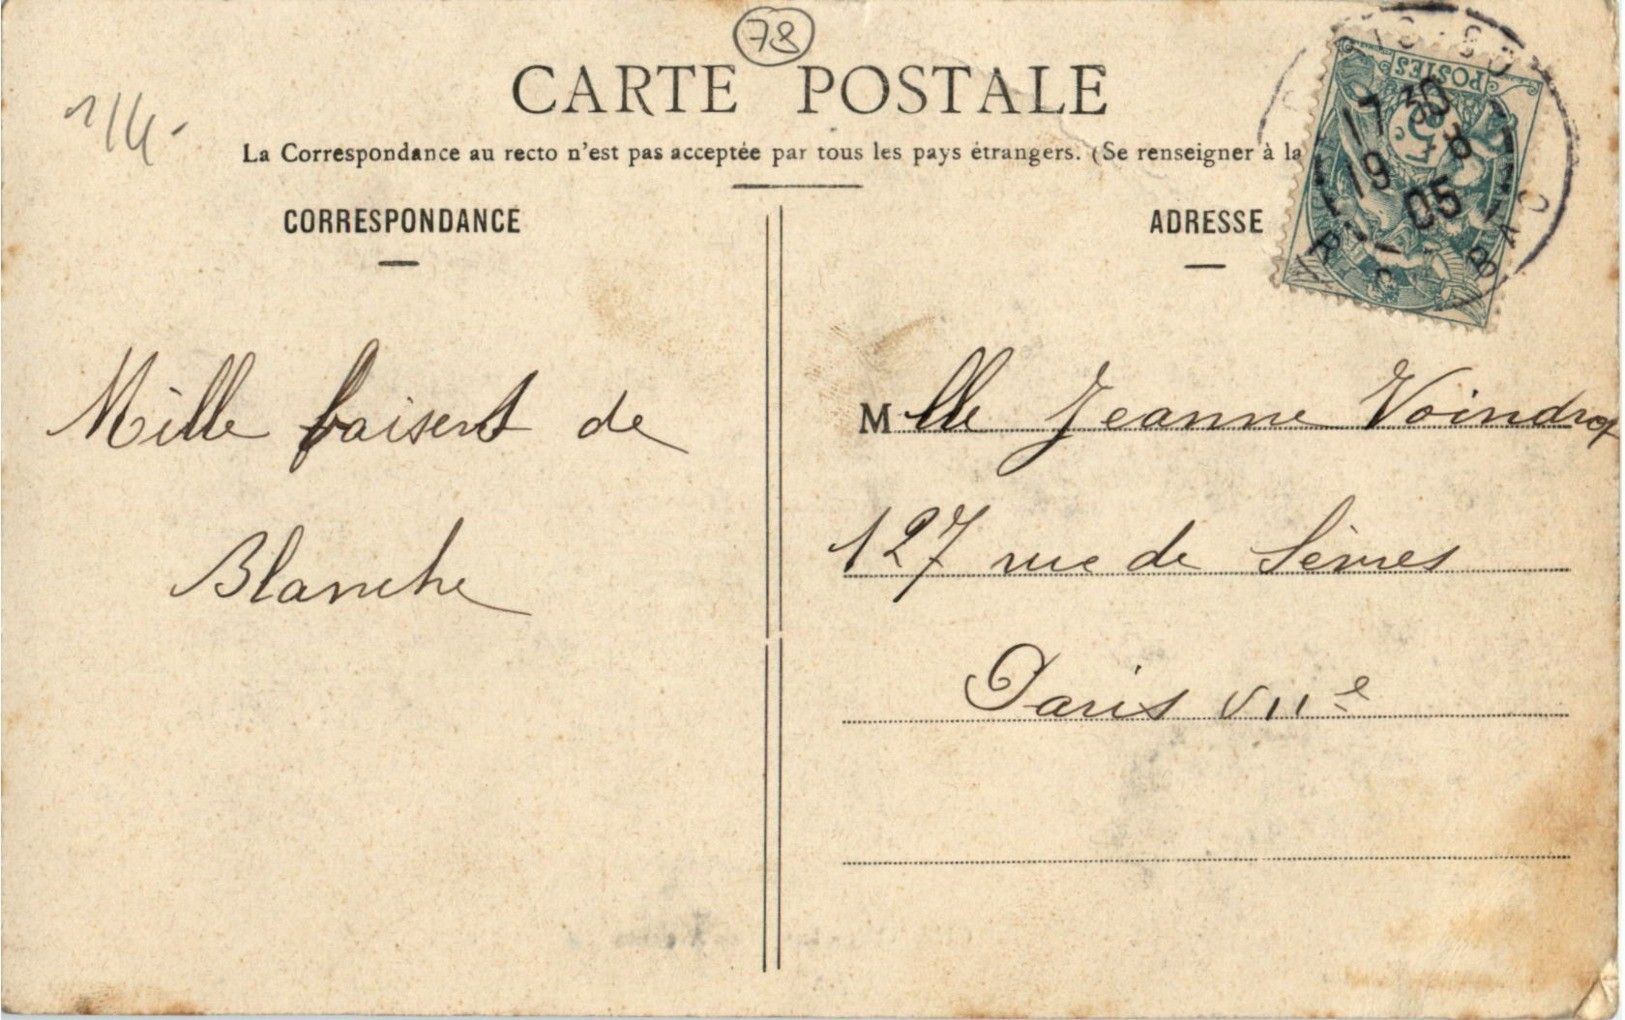 78
1/4.
CARTE POSTALE
La Correspondance au recto n'est pas acceptée par tous les pays étrangers. (Se renseigner à la
CORRESPONDANCE
ADRESSE
POSTES
5c
17 30
19 8
05
BAC
Mille baisers de
Blanche
Mlle Jeanne Voindrot
127 rue de Sèvres
Paris VIIe